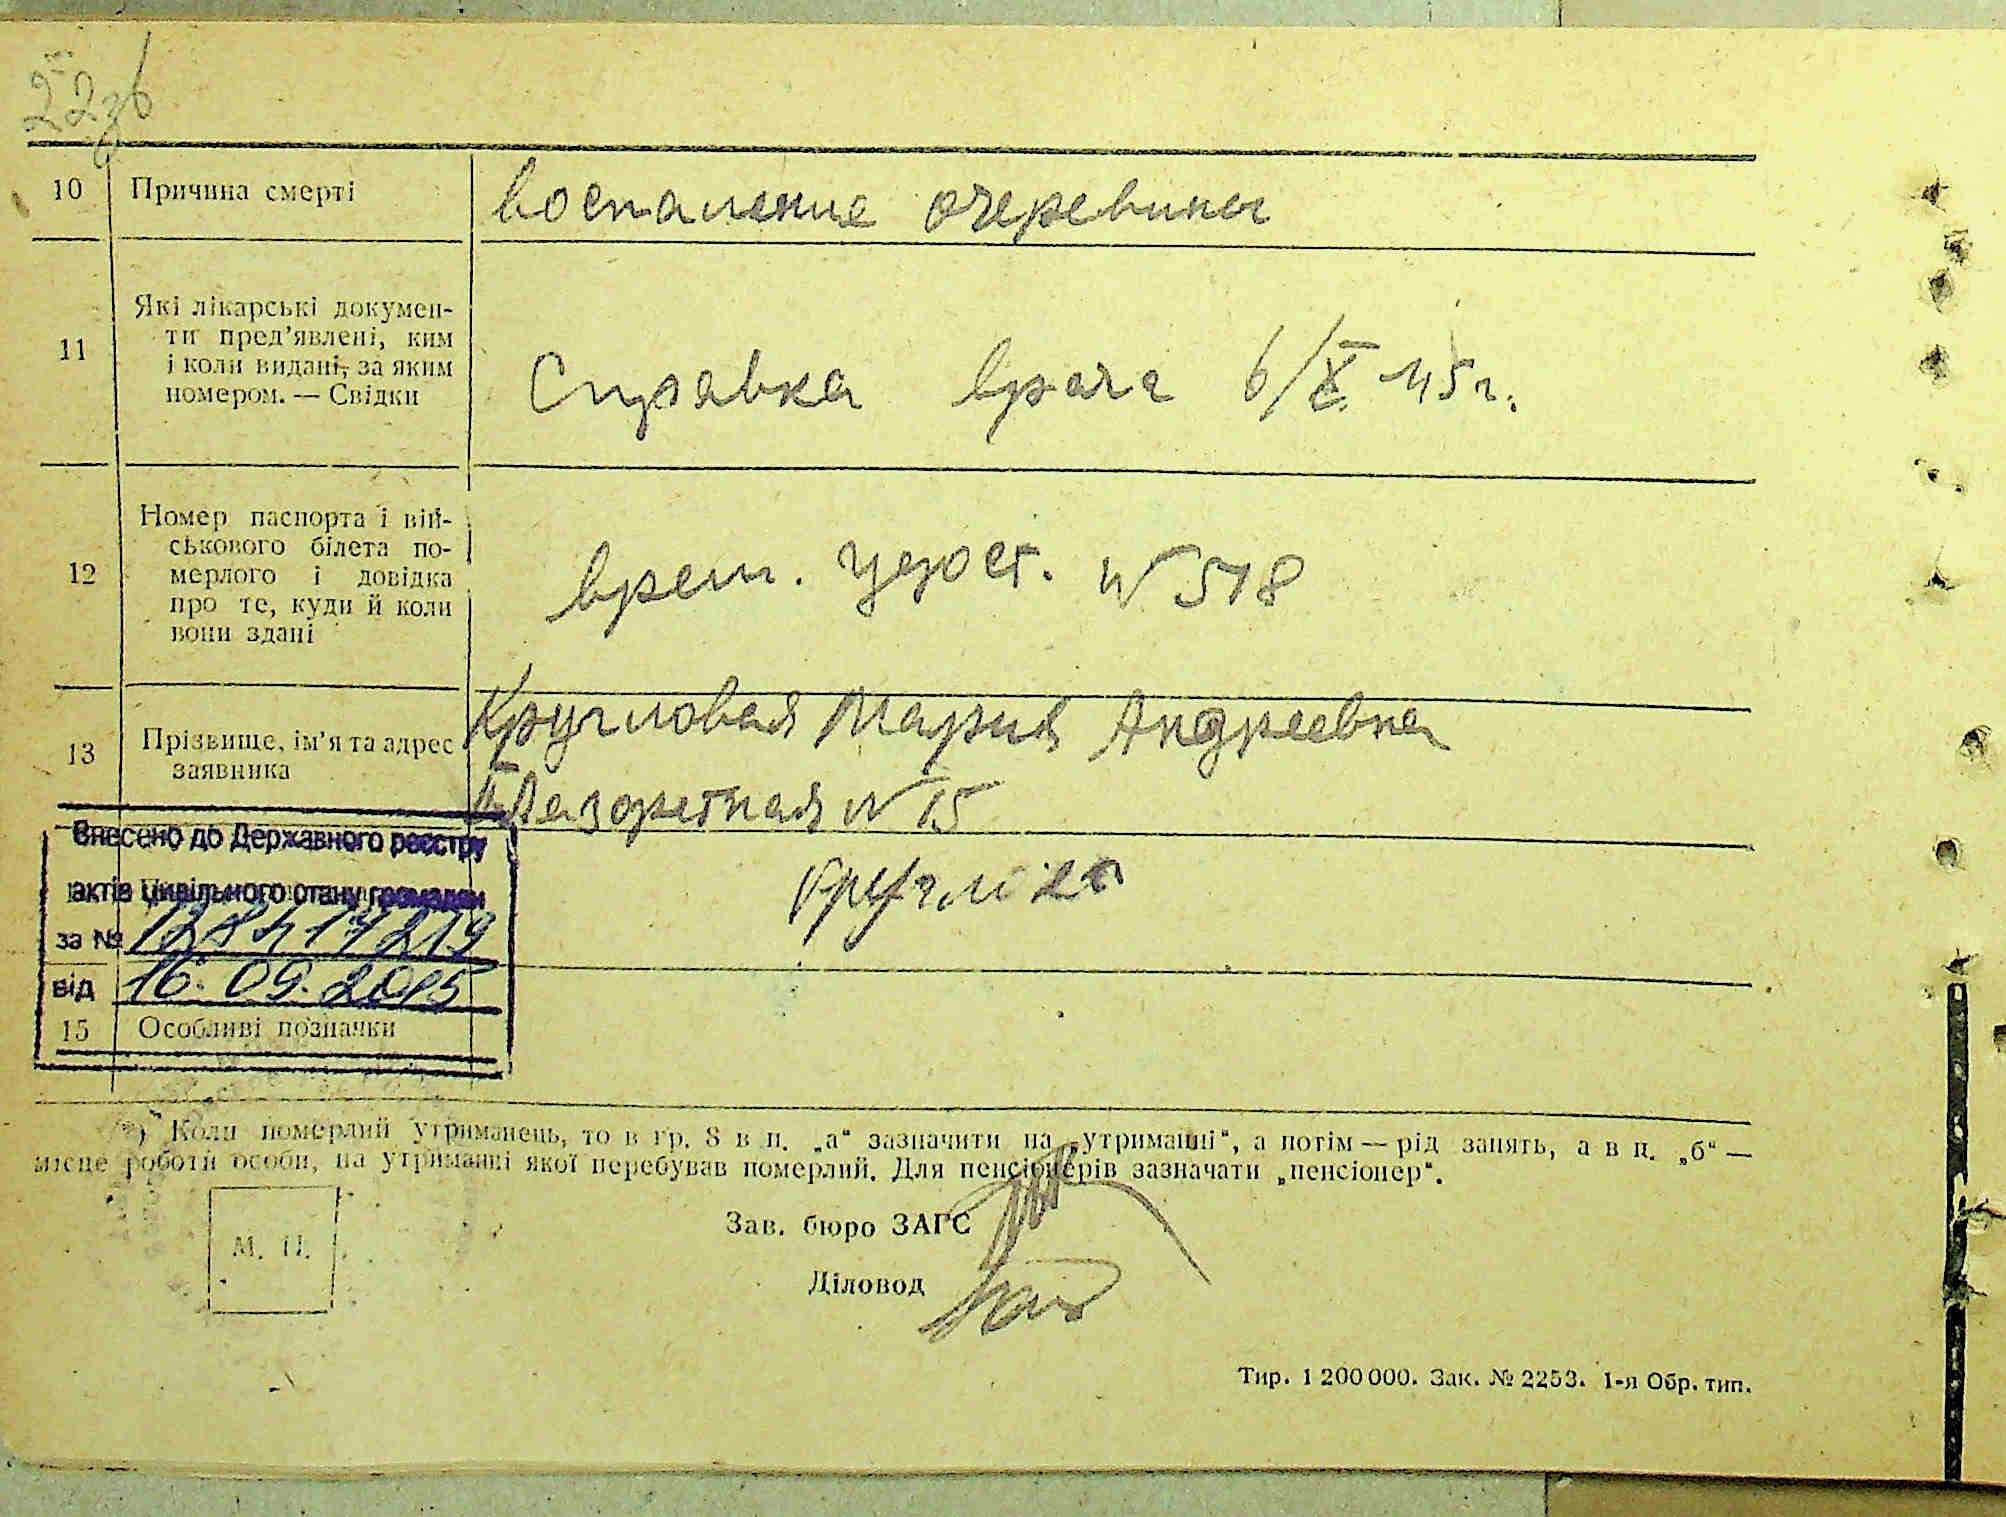 10 Причина смерті воспаление очеревины
11 Які лікарські докумен-
ти пред'явлені, ким
і коли видані, за яким
номером. — Свідки
Справка врача 6/X 45 г.
12 Номер паспорта і вій-
ськового білета по-
мерлого і довідка
про те, куди й коли
вони здані
врем. удост. N 518
13 Прізвище, ім'я та адрес
заявника
Кругловая Мария Андреевна
Лазоретная N 15
Внесено до Державного реєстру
актів цивільного стану громадян
за №
від 16.09.2015
15 Особливі позначки
*) Коли померлий утриманець, то в гр. 8 в п. „а“ зазначити на „утриманні“, а потім — рід занять, а в п. „б“ —
місце роботи особи, на утриманні якої перебував померлий. Для пенсіонерів зазначати „пенсіонер“.
М. П.
Зав. бюро ЗАГС
Діловод
Тир. 1 200 000. Зак. № 2253. 1-я Обр. тип.